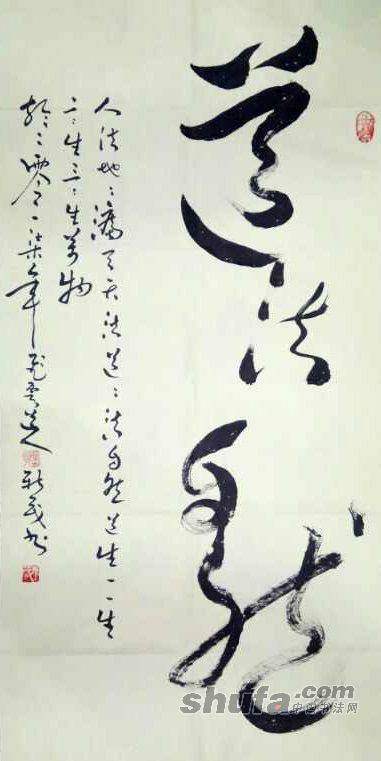 道法自然
人法地〻灋天天法道〻法自然道生一一生
二〻生三〻生萬物
於二零一柒年飛雲道人
shufa.com
中国书法网